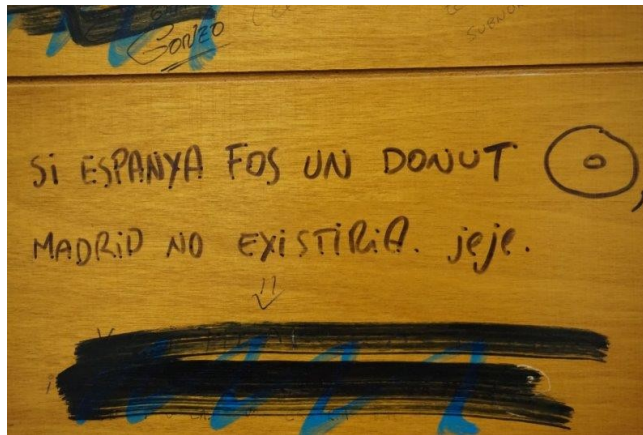 GONZO
SUBNOR
Si ESPANYA FOS UN DONUT ,
MADRiD NO EXiSTiRiA. jeje.